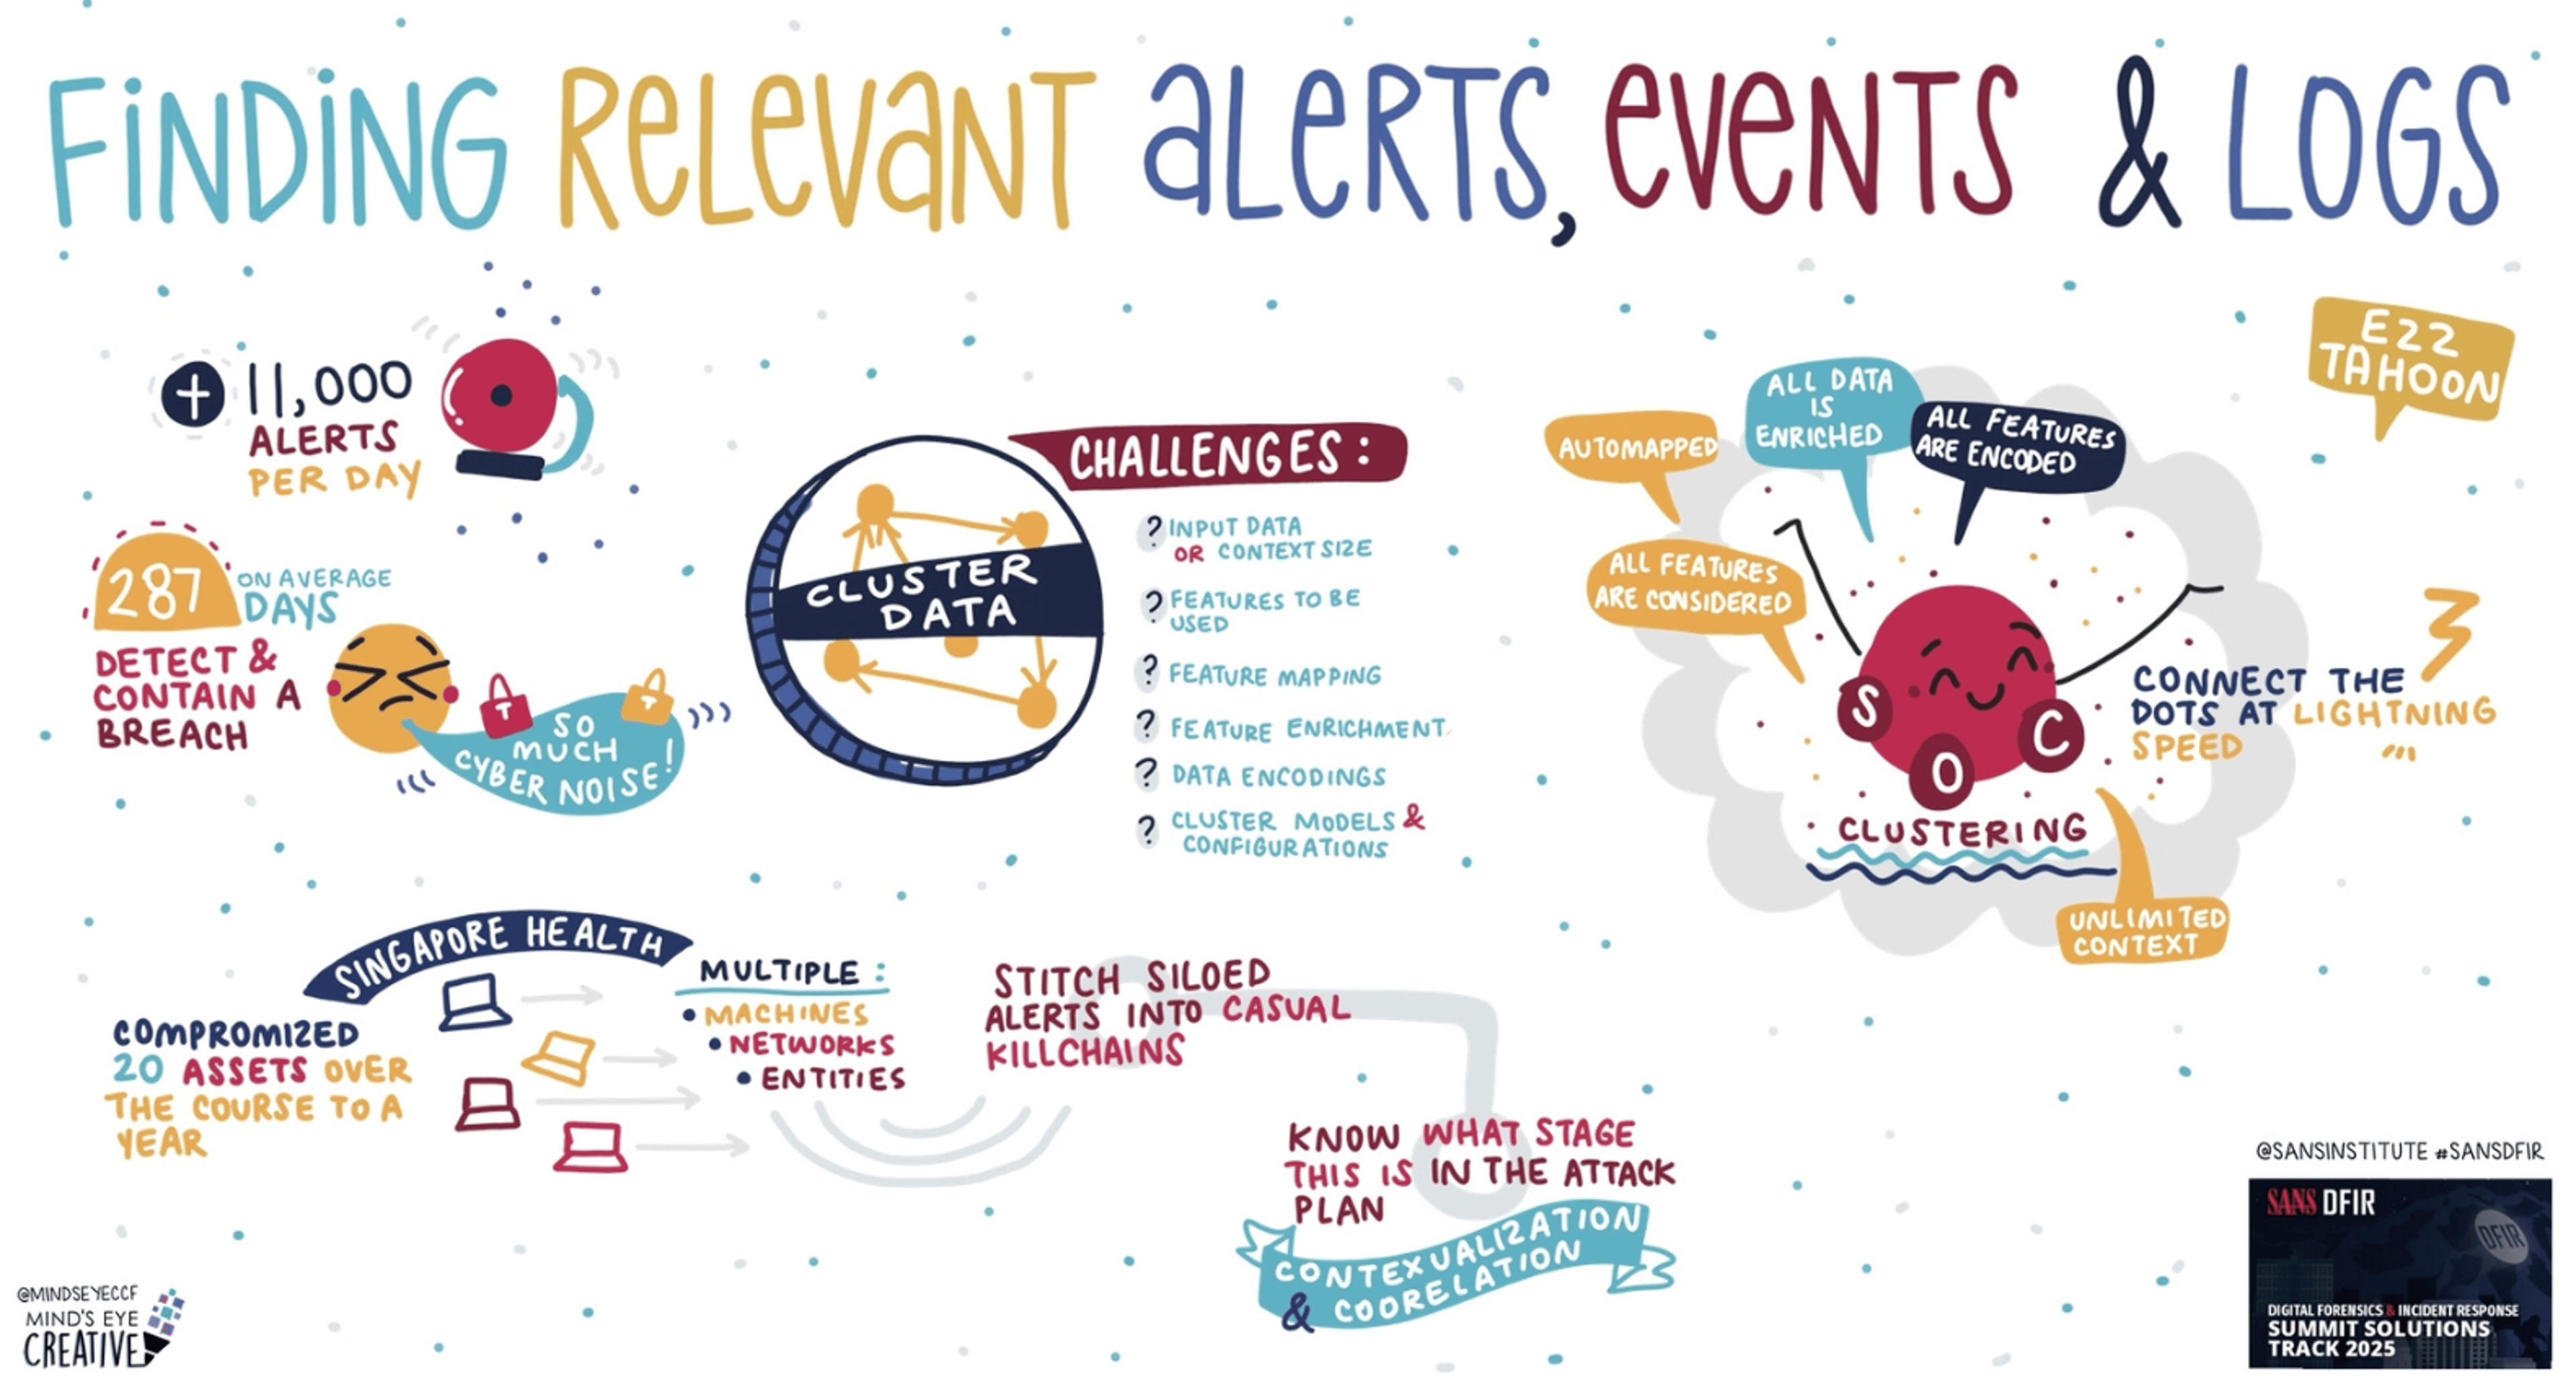 FINDING RELEVANT ALERTS, EVENTS & LOGS
+ 11,000
ALERTS
PER DAY
287 ON AVERAGE
DAYS
DETECT &
CONTAIN A
BREACH
T
T
SO
MUCH
CYBER NOISE!
CLUSTER
DATA
CHALLENGES:
? INPUT DATA
OR CONTEXT SIZE
? FEATURES TO BE
USED
? FEATURE MAPPING
? FEATURE ENRICHMENT
? DATA ENCODINGS
? CLUSTER MODELS &
CONFIGURATIONS
E22
TAHOON
AUTOMAPPED
ALL DATA
IS
ENRICHED
ALL FEATURES
ARE ENCODED
ALL FEATURES
ARE CONSIDERED
S O C
CLUSTERING
CONNECT THE
DOTS AT LIGHTNING
SPEED
UNLIMITED
CONTEXT
SINGAPORE HEALTH
COMPROMIZED
20 ASSETS OVER
THE COURSE TO A
YEAR
MULTIPLE:
• MACHINES
• NETWORKS
• ENTITIES
STITCH SILOED
ALERTS INTO CASUAL
KILLCHAINS
KNOW WHAT STAGE
THIS IS IN THE ATTACK
PLAN
CONTEXUALIZATION
& COORELATION
@MINDSEYECCF
MIND'S EYE
CREATIVE
@SANSINSTITUTE #SANSDFIR
SANS DFIR
DFIR
DIGITAL FORENSICS & INCIDENT RESPONSE
SUMMIT SOLUTIONS
TRACK 2025